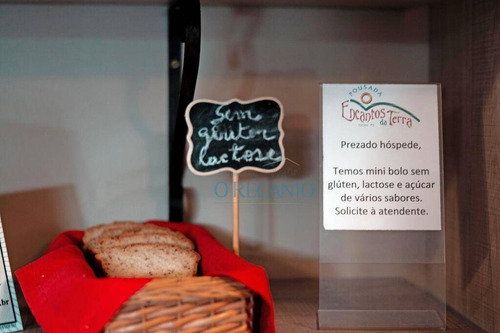 Sem
glúten
lactose
POUSADA
Encantos
da Terra
Prezado hóspede,
Temos mini bolo sem
glúten, lactose e açúcar
de vários sabores.
Solicite à atendente.